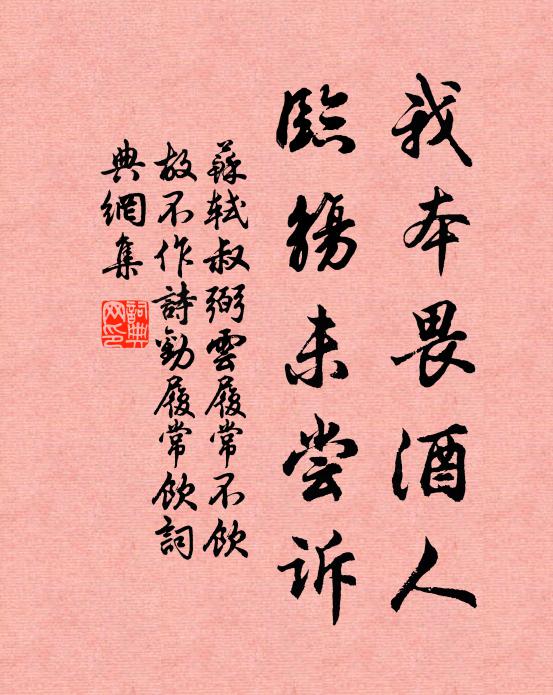 我本畏酒人
臨觴未尝诉
蘇軾叔弼雲履常不飲
故不作詩勸履常飲詞
典網集
詞典
网印